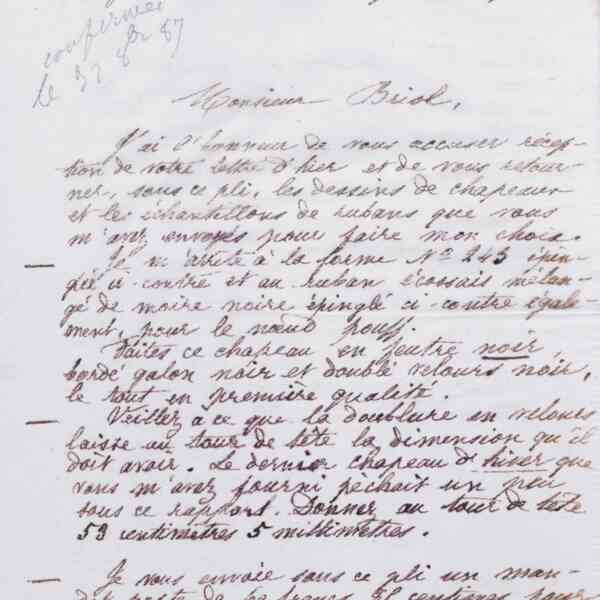 confirmée
le 27 8bre 87
Monsieur Briol,
J'ai l'honneur de vous accuser récep-
tion de votre lettre d'hier et de vous retour-
ner, sous ce pli, les dessins de chapeaux
et les échantillons de rubans que vous
m'avez envoyés pour faire mon choix.
— Je m'arrête à la forme No 243 épin-
glée ci-contre et au ruban écossais mélan-
gé de moire noire épinglé ci-contre égale-
ment, pour le nœud pouff.
Faites ce chapeau en feutre noir,
bordé galon noir et doublé velours noir,
le tout en première qualité.
— Veillez à ce que la doublure en velours
laisse au tour de tête la dimension qu'il
doit avoir. Le dernier chapeau d'hiver que
vous m'avez fourni péchait un peu
sous ce rapport. Donner au tour de tête
53 centimètres 5 millimètres.
— Je vous envoie sous ce pli un man-
dat poste de francs centimes pour